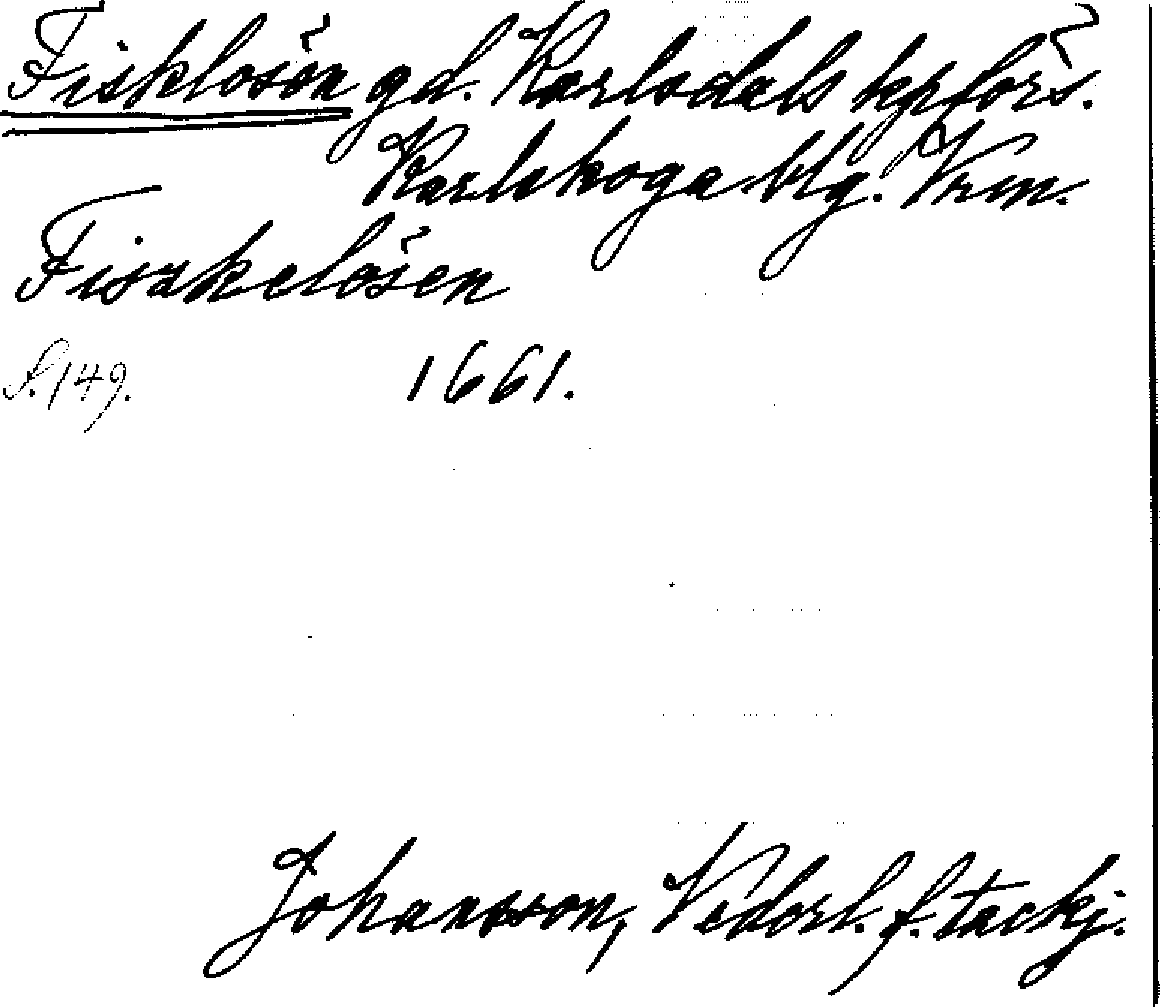 Fisklösön gd. Karlsdals kpförs.
Karlskoga blg. Vrm.
Fiszkelösen
S. 149. 1661.
Johansson, Vedorl. f. tackj.